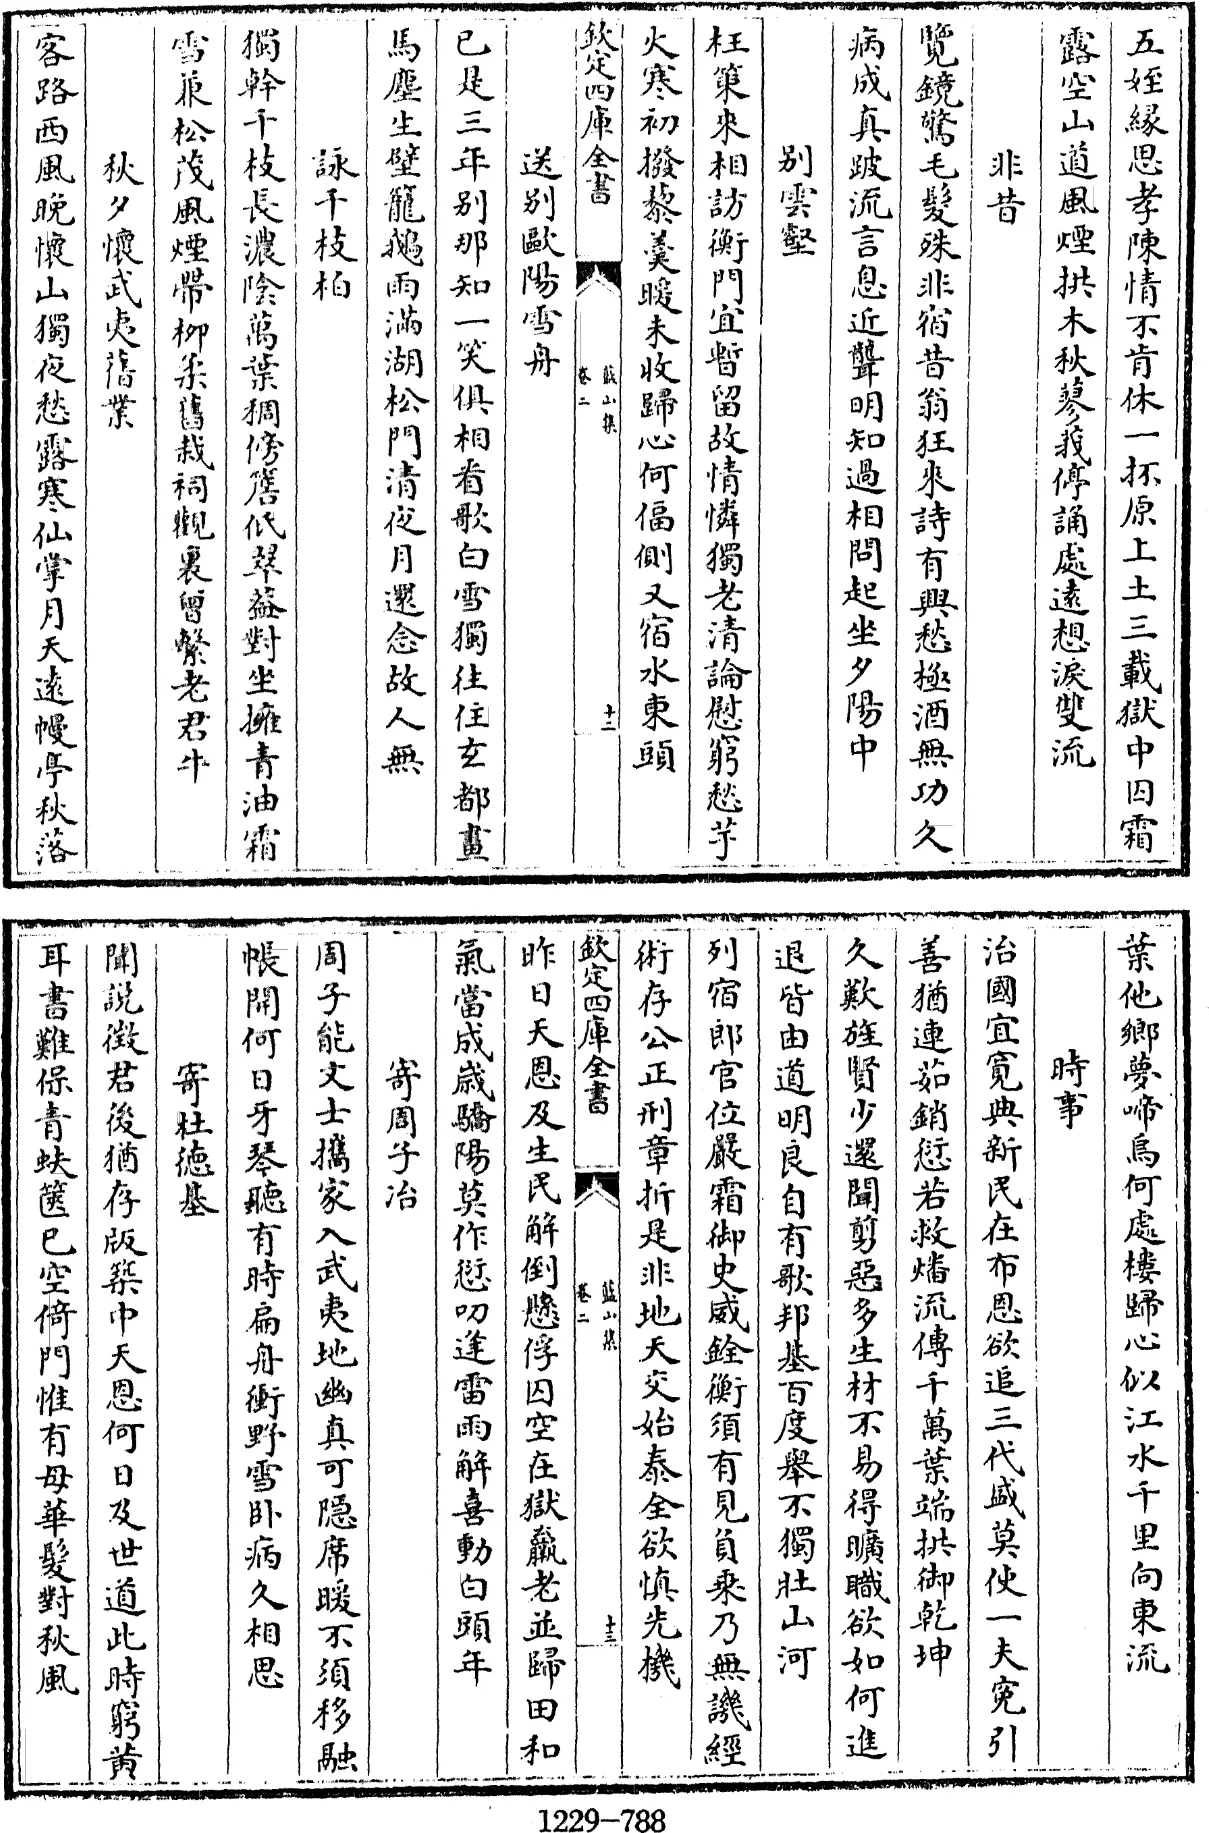 五姪緣思孝陳情不肯休一抔原上土三載獄中囚霜
露空山道風煙拱木秋蓼莪停誦處遠想淚雙流
非昔
覽鏡驚毛髮殊非宿昔翁狂來詩有興愁極酒無功久
病成真跛流言息近聾明知過相問起坐夕陽中
別雲壑
枉策來相訪衡門宜暫留故情憐獨老清論慰窮愁芋
火寒初撥藜羹暖未收歸心何偪側又宿水東頭
欽定四庫全書
藍山集
卷二
十二
送別歐陽雪舟
已是三年別那知一笑俱相看歌白雪獨往住玄都畫
馬塵生壁籠鵝雨滿湖松門清夜月還念故人無
詠千枝柏
獨幹千枝長濃陰萬葉稠傍簷低翠蓋對坐擁青油霜
雪兼松茂風煙帶柳柔舊栽祠觀裏曾繫老君牛
秋夕懷武夷舊業
客路西風晚懷山獨夜愁露寒仙掌月天遠幔亭秋落
葉他鄉夢啼烏何處樓歸心似江水千里向東流
時事
治國宜寬典新民在布恩欲追三代盛莫使一夫寃引
善猶連茹銷愆若救燔流傳千萬葉端拱御乾坤
久歎旌賢少還聞剪惡多生材不易得曠職欲如何進
退皆由道明良自有歌邦基百度舉不獨壯山河
列宿郎官位嚴霜御史威銓衡須有見負乘乃無譏經
術存公正刑章折是非地天交始泰全欲慎先機
欽定四庫全書
藍山集
卷二
十三
昨日天恩及生民解倒懸俘囚空在獄羸老並歸田和
氣當成歲驕陽莫作愆叨逢雷雨解喜動白頭年
寄周子冶
周子能文士攜家入武夷地幽真可隱席暖不須移融
帳開何日牙琴聽有時扁舟衝野雪卧病久相思
寄杜德基
聞說徵君後猶存版築巾天恩何日及世道此時窮黄
耳書難保青蚨篋已空倚門惟有母華髮對秋風
1229-788